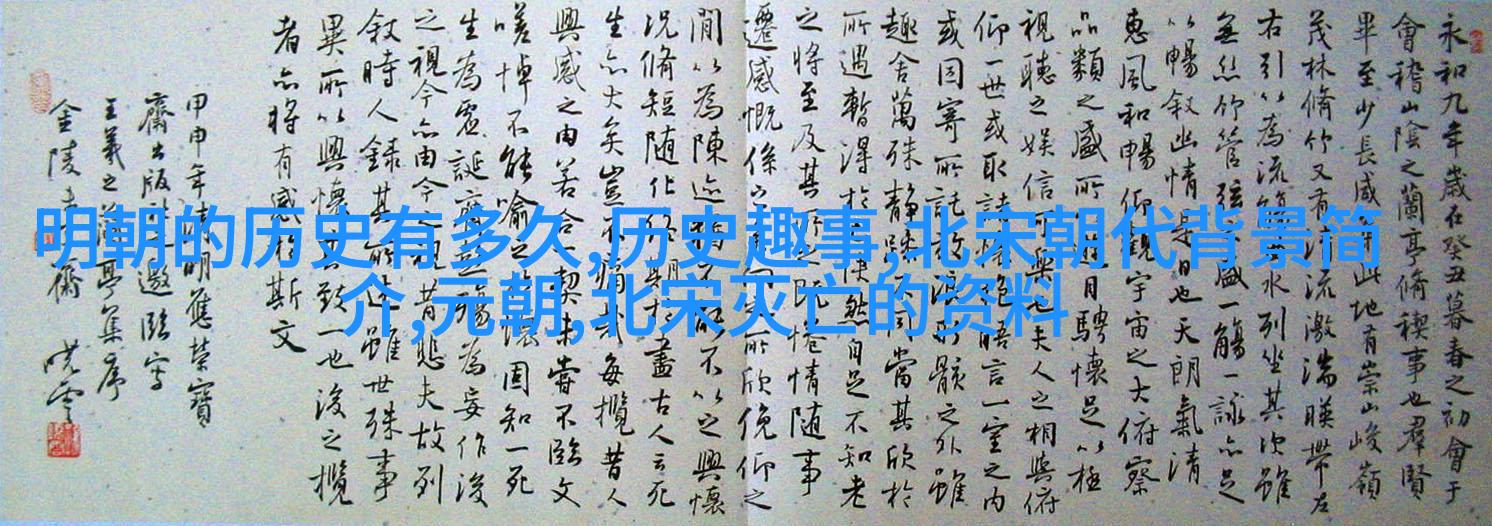 明朝的历史有多久,历史趣事,北宋朝代背景简
介,元朝,北宋灭亡的资料
永和九年歲在癸丑暮春之初會于
會稽山陰之蘭亭脩稧事也羣賢
畢至少長咸集此地有崇山峻嶺
茂林脩竹又有清流激湍暎帶左
右引以為流觴曲水列坐其次雖
無絲竹管弦之盛一觴一詠亦足
以暢敘幽情是日也天朗氣清
惠風和暢仰觀宇宙之大俯察
品類之盛所以遊目騁懷足以極
視聽之娛信可樂也夫人之相與俯
仰一世或取諸懷抱悟言一室之內
或因寄所託放浪形骸之外雖
趣舍萬殊靜躁不同當其欣於
所遇暫得於己快然自足不知老
之將至及其所之既惓情隨事
遷感慨係之矣向之所欣俛仰之
閒以為陳迹猶不能不以之興懷
況脩短隨化終期於盡古人云死
生亦大矣豈不痛哉每攬昔人
興感之由若合一契未嘗不臨文
嗟悼不能喻之於懷固知一死
生為虛誕齊彭殤為妄作後
之視今亦由今之視昔悲夫故列
敘時人錄其所述雖世殊事
異所以興懷其致一也後之攬
者亦將有感於斯文
甲申年清明應榮寶
齋出版社之邀臨寫
王羲之蘭亭集序
金陵 齋 曉雲